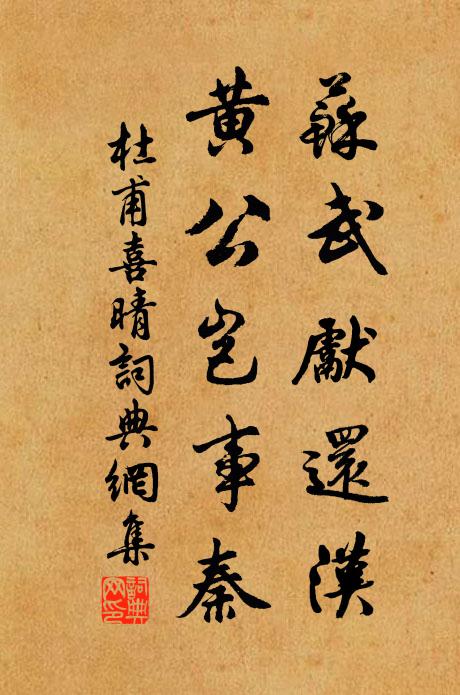 蘇武獻還漢
黃公豈事秦
杜甫喜晴詞典網集
詞典网印